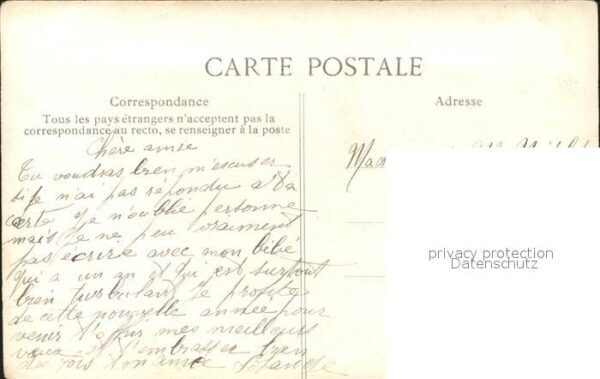 CARTE POSTALE
Correspondance
Tous les pays étrangers n'acceptent pas la
correspondance au recto, se renseigner à la poste
Adresse
Chère amie
Tu voudras bien m'escuser
si je n'ai pas répondu a ta
carte je n'oublie personne
mais je ne peu vraiment
pas écrire avec mon bébé
qui a un an et qui est surtout
bien turbulant je profite
de cette nouvelle année pour
venir t'offrir mes meilleurs
voeux et t'embrasser bien
des fois ton amie
privacy protection
Datenschutz